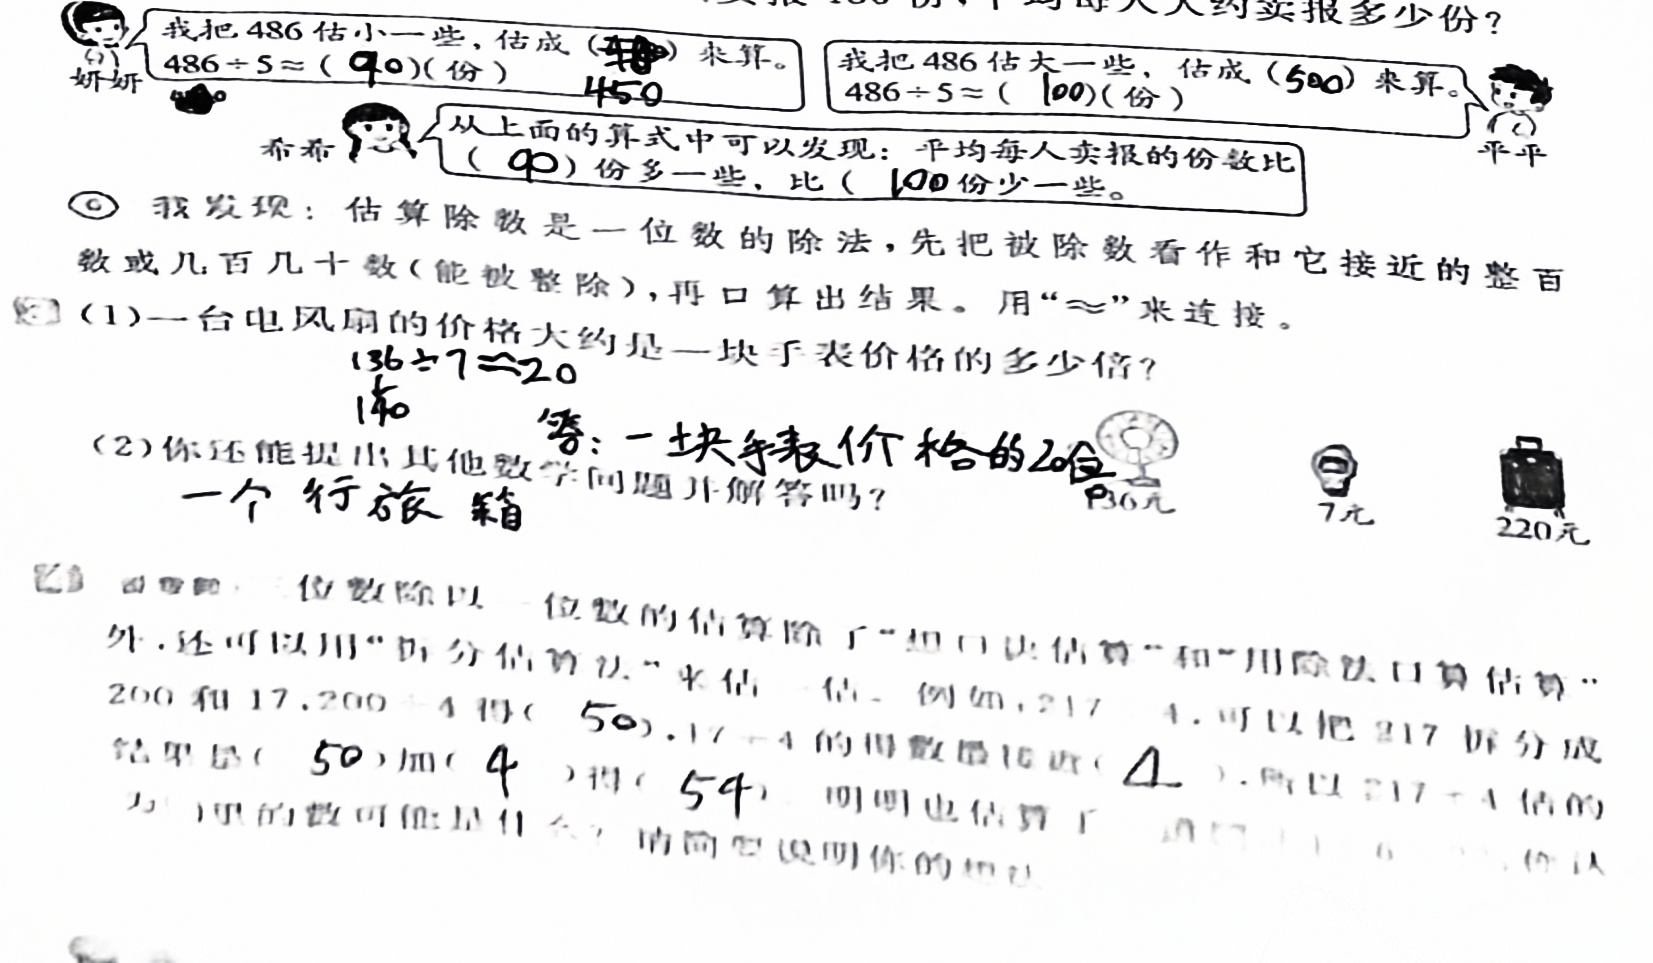 卖报486份,平均每人大约卖报多少份?
我把486估小一些,估成( )来算。
450
486÷5≈(90)(份)
妍妍
我把486估大一些,估成(500)来算。
486÷5≈(100)(份)
平平
从上面的算式中可以发现:平均每人卖报的份数比
(90)份多一些,比(100份少一些。
希希
我发现:估算除数是一位数的除法,先把被除数看作和它接近的整百
数或几百几十数(能被整除),再口算出结果。用“≈”来连接。
(1)一台电风扇的价格大约是一块手表价格的多少倍?
136÷7≈20
140
答:一块手表价格的20倍
(2)你还能提出其他数学问题并解答吗?
一个行旅箱
136元
7元
220元
位数除以一位数的估算除了“想口诀估算”和“用除法口算估算”
外,还可以用“拆分估算法”来估一估。例如,217÷4,可以把217拆分成
200和17,200÷4得(50),17÷4的得数最接近(4),所以217÷4估的
结果是(50)加(4)得(54)。明明也估算了
里的数可能是什么?请简要说明你的想法